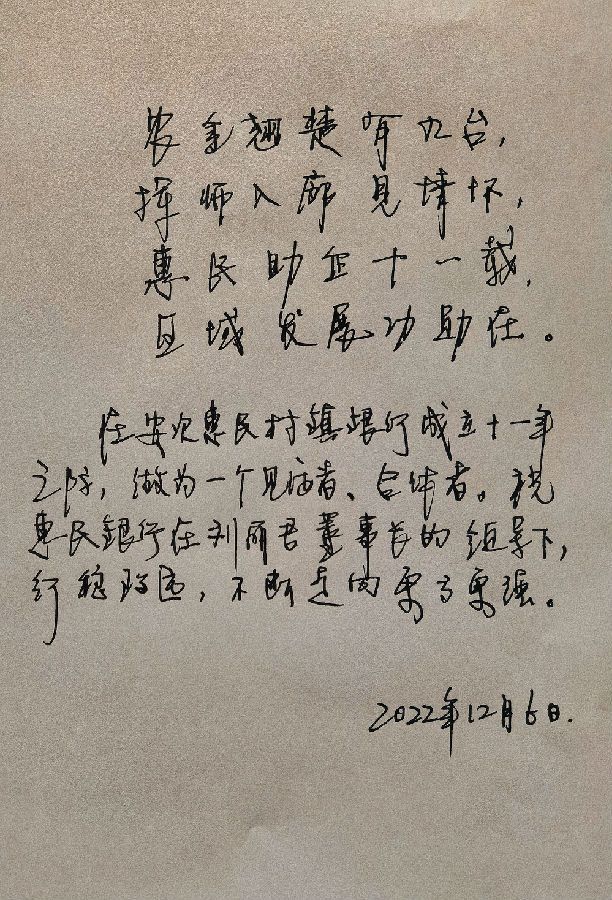 农金翘楚有九台，
挥师入廊见情怀，
惠民助企十一载，
区域发展功勋在。
在安次惠民村镇银行成立十一年
之际，做为一个见证者、合伴者。祝
惠民銀行在刘丽君董事长的领导下，
行稳致远，不断走向更高更强。
2022年12月6日.